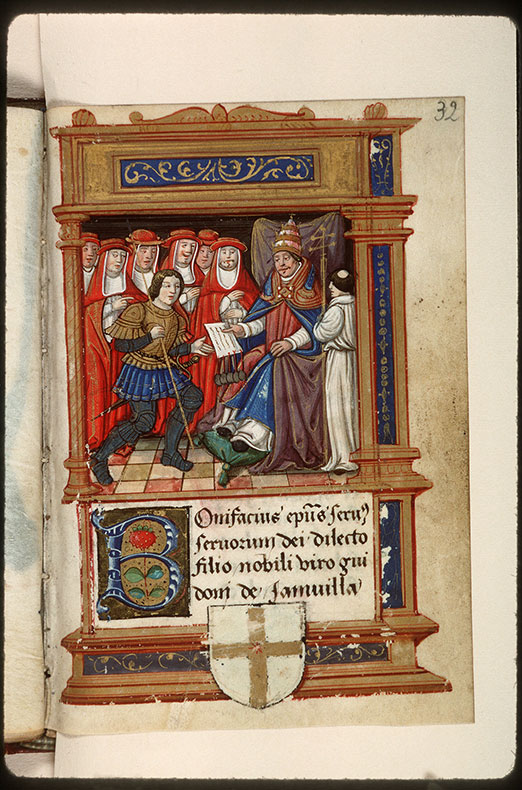 32
Bonifacius ep̄us seruꝰ
seruorum dei dilecto
filio nobili viro gui
doni de Januilla